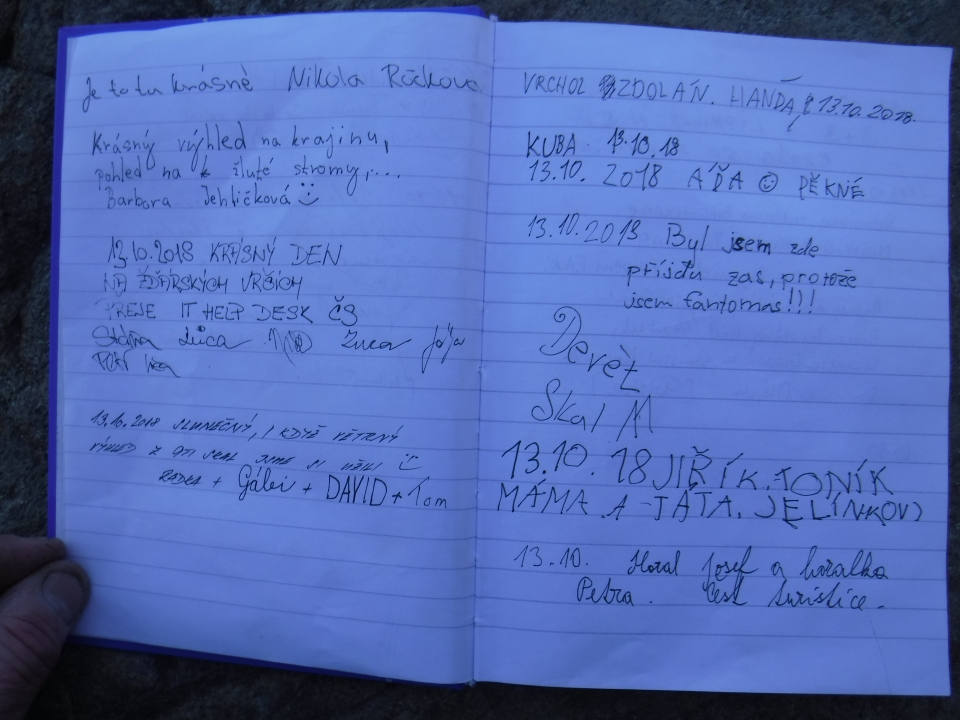 Je to tu krásné Nikola Růčková
Krásný výhled na krajinu,
pohled na žluté stromy,...
Barbora Jehličková
13.10.2018 KRÁSNÝ DEN
NA ŽĎÁRSKÝCH VRŠÍCH
PŘEJE IT HELP DESK ČS
Lůca Zuca Jája
13.10.2018 SLUNEČNÝ, I KDYŽ VĚTRNÝ
VÝHLED Z JSME SI UŽILI
RADKA + Gábi + DAVID + Tom
VRCHOL ZDOLÁN. HANDA, 13.10.2018.
KUBA 13.10.18
13.10. 2018 AĎA ☺ PĚKNÉ
13.10.2018 Byl jsem zde
příjdu zas, protože
jsem fantomas!!!
Devět
Skal
13.10.18 JIŘÍK. TONÍK
MÁMA A TÁTA. JELÍNKOVI
13.10. Horal Josef a horalka
Petra. Čest turistice.